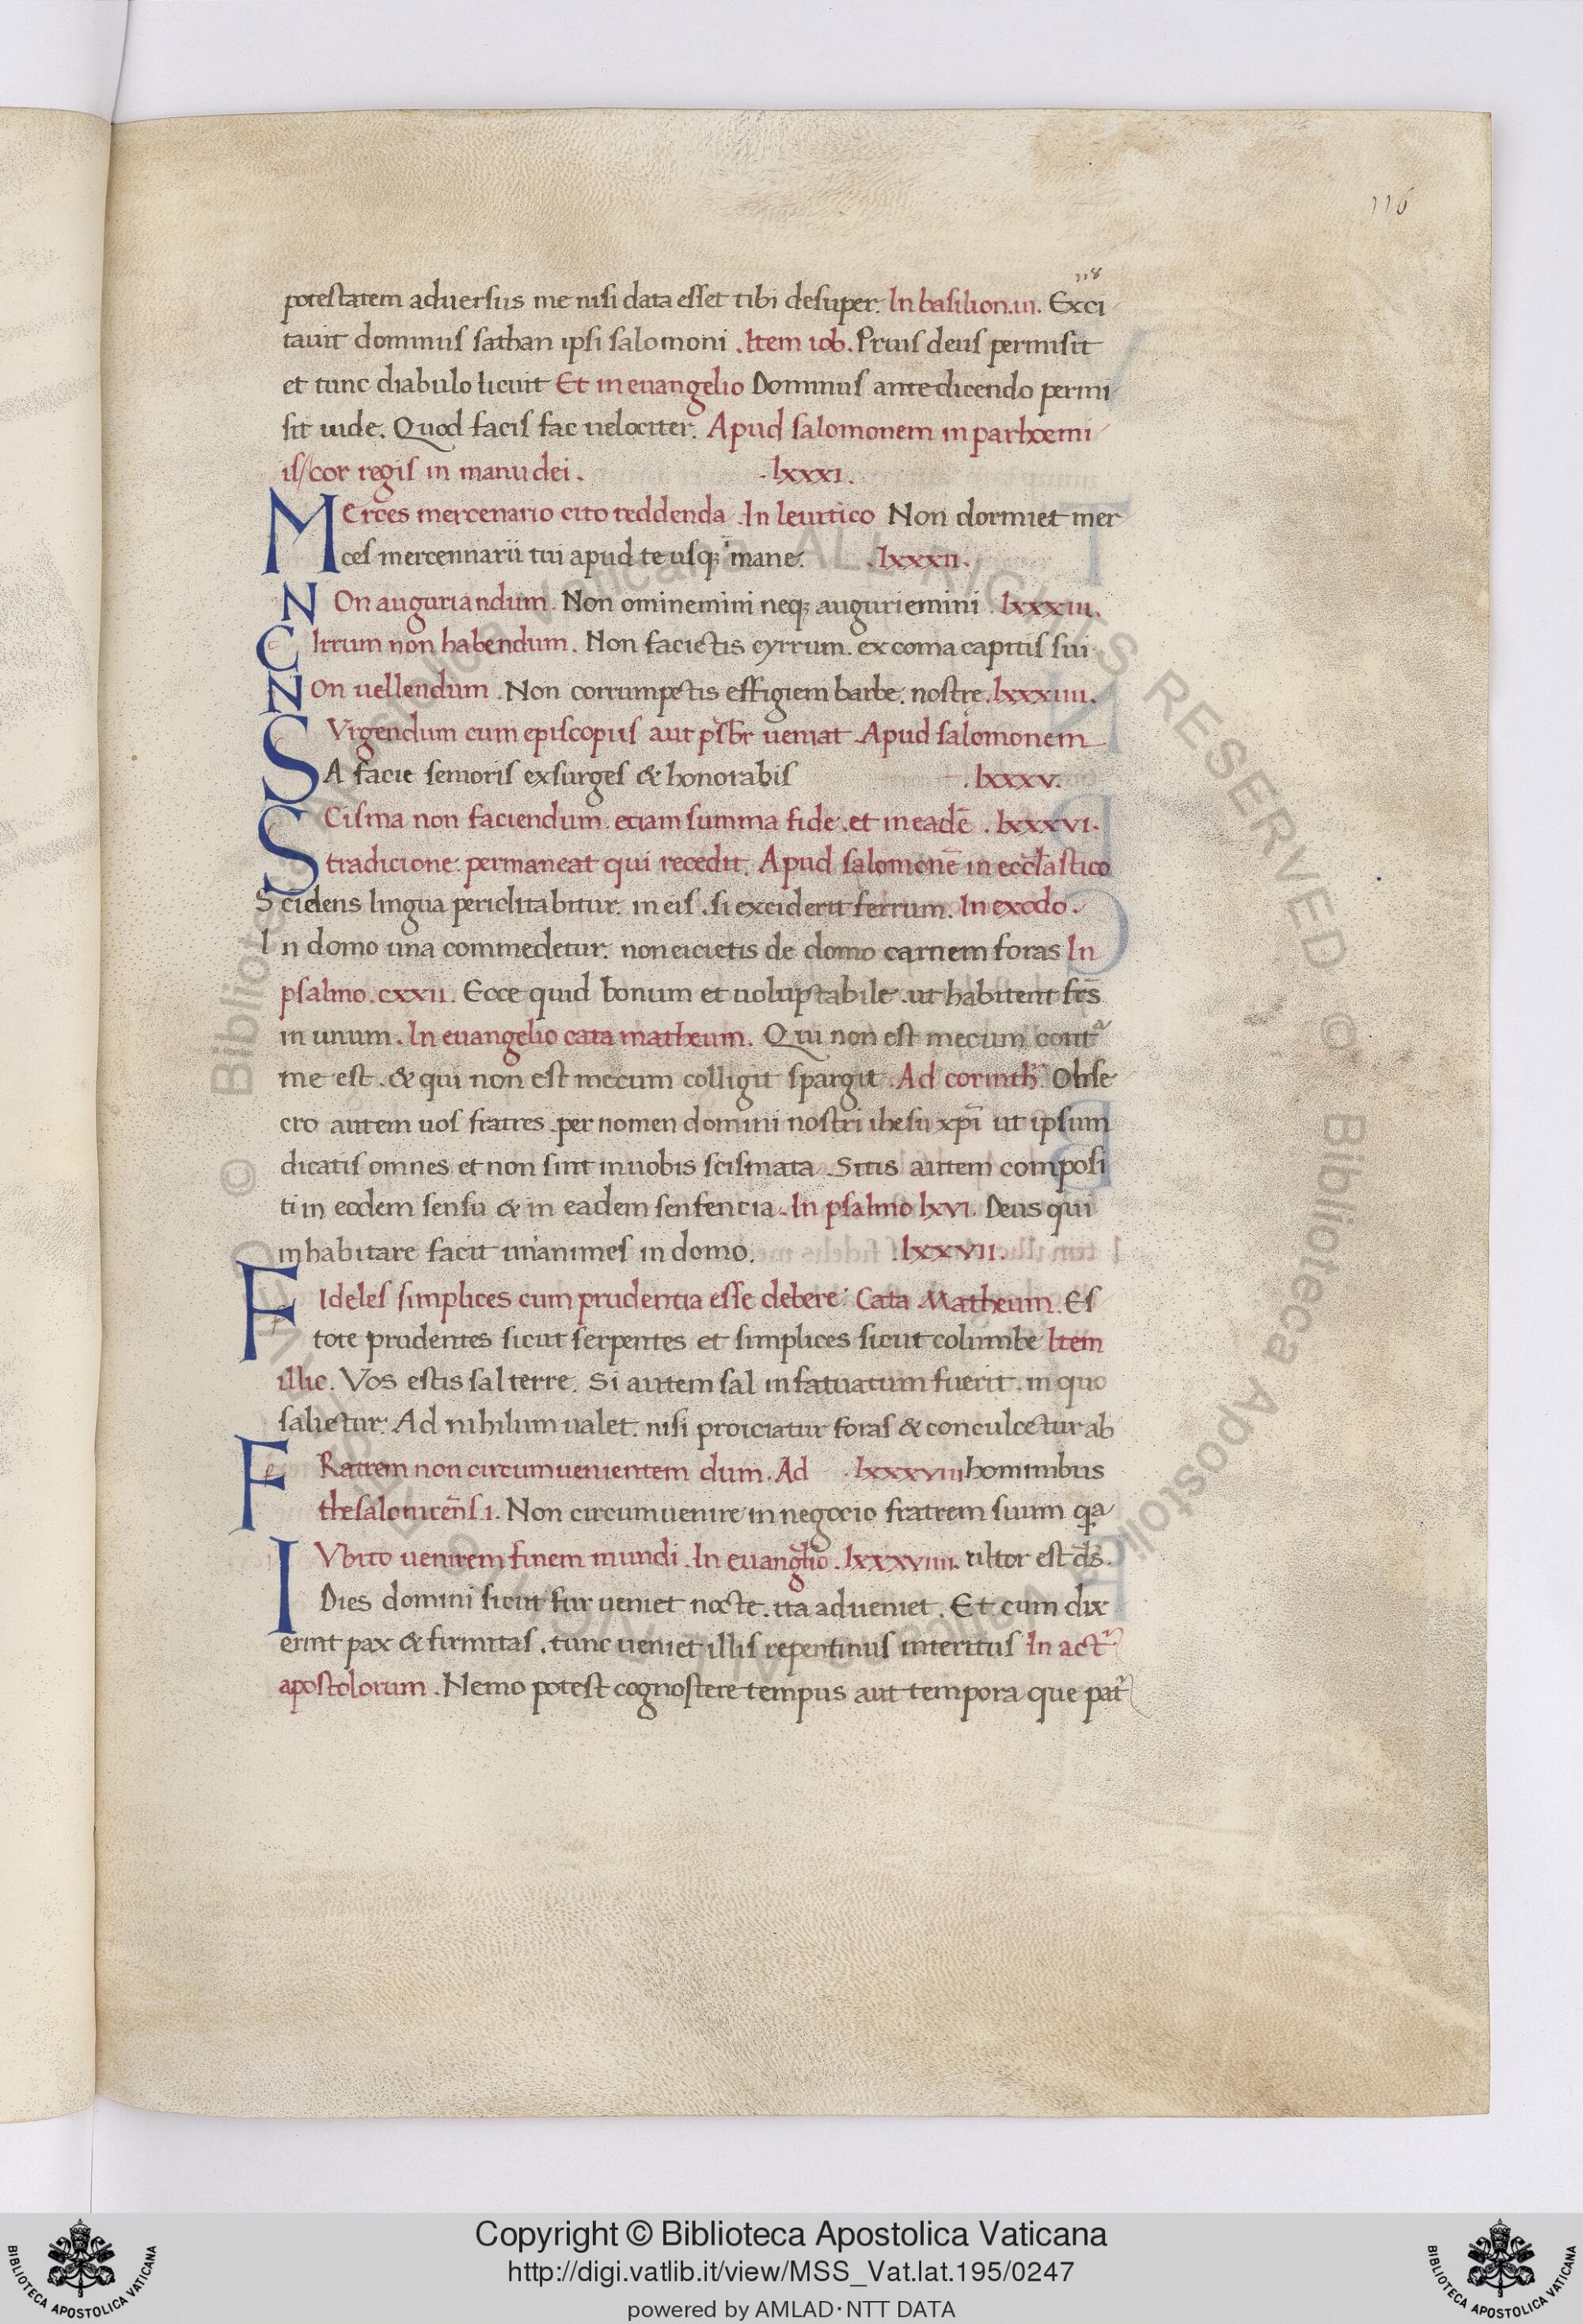 116
118
potestatem aduersus me nisi data esset tibi desuper. In basilion.iii. Exci
tauit dominus sathan ipsi salomoni .Item iob. Prius deus permisit
et tunc diabulo licuit Et in euangelio Dominus ante dicendo permi
sit iude. Quod facis fac uelociter. Apud salomonem in parhoemi
is/cor regis in manu dei. .lxxxi.
MErces mercenario cito reddenda .In leuitico Non dormiet mer
ces mercennarii tui apud te usq; mane. .lxxxii.
NOn auguriandum. Non ominemini neq; auguriemini .lxxxiii.
CIrrum non habendum. Non facietis cyrrum. ex coma capitis sui
NOn uellendum .Non corrumpetis effigiem barbe. nostre.lxxxiiii.
SVrgendum cum episcopus aut psb̄r ueniat .Apud salomonem
A facie senioris exsurges & honorabis .lxxxv.
SCisma non faciendum. eciam summa fide .et in eadē .lxxxvi.
tradicione permaneat qui recedit. Apud salomonē in eccl̄astico
Scidens lingua periclitabitur. in eis .si exciderit ferrum. In exodo.
In domo una commedetur. non eicietis de domo carnem foras In
psalmo.cxxii. Ecce quid bonum et uoluptabile .ut habitent frs̄
in unum. In euangelio cata matheum. Qui non est mecum contᷓ
me est .& qui non est mecum colligit spargit .Ad corinth̄. Obse
cro autem uos fratres .per nomen domini nostri ihesu xpī ut ipsum
dicatis omnes et non sint in uobis scismata .Sitis autem composi
ti in eodem sensu & in eadem sentencia .In psalmo lxvi. Deus qui
inhabitare facit unanimes in domo. .lxxxvii.
FIdeles simplices cum prudentia esse debere. Cata Matheum. Es
tote prudentes sicut serpentes et simplices sicut columbe Item
illic. Vos estis sal terre. Si autem sal infatuatum fuerit .in quo
salietur. Ad nihilum ualet. nisi proiciatur foras & conculcetur ab
FRatrem non circumuenientem dum. Ad .lxxxviii hominibus
thesalonicen̄s.i. Non circumuenire in negocio fratrem suum qa
IVbito uenirem finem mundi .In euangl̄io .lxxxviiii. ultor est ds̄.
Dies domini sicut fur ueniet nocte .ita adueniet. Et cum dix
erint pax & firmitas .tunc ueniet illis repentinus interitus In actᷓ
apostolorum .Nemo potest cognostere tempus aut tempora que patᷓ
© Biblioteca Apostolica Vaticana ALL RIGHTS RESERVED
BIBLIOTECA APOSTOLICA VATICANA
Copyright © Biblioteca Apostolica Vaticana
http://digi.vatlib.it/view/MSS_Vat.lat.195/0247
powered by AMLAD·NTT DATA
BIBLIOTECA APOSTOLICA VATICANA